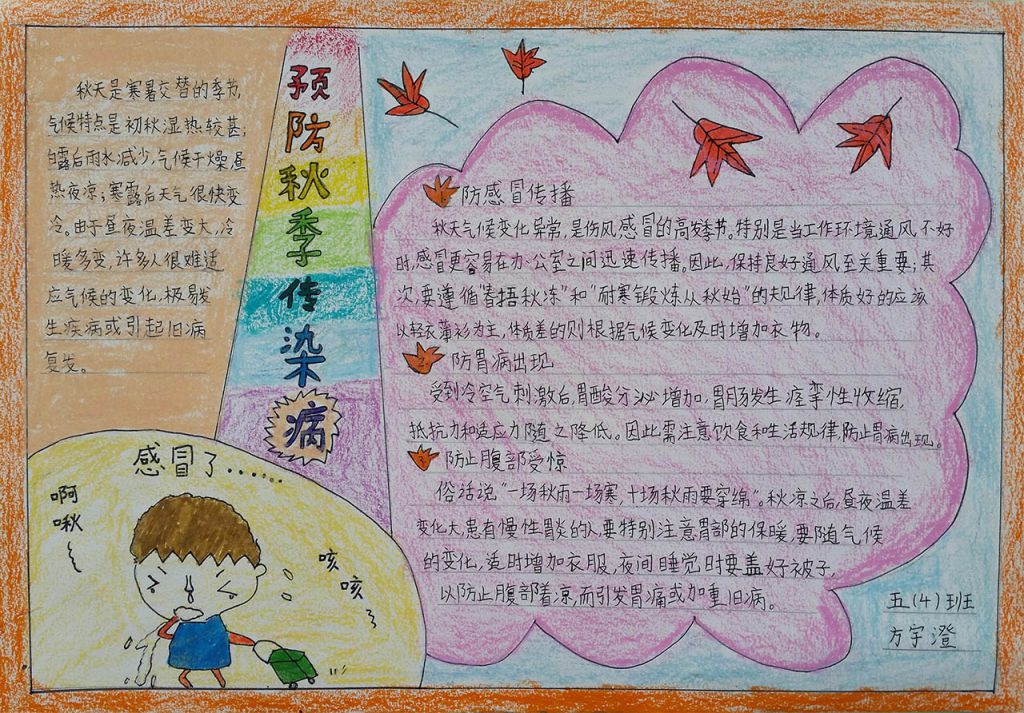 预防秋季传染病
秋天是寒暑交替的季节,
气候特点是初秋湿热较甚;
白露后雨水减少,气候干燥昼
热夜凉;寒露后天气很快变
冷。由于昼夜温差变大,冷
暖多变,许多人很难适
应气候的变化,极易发
生疾病或引起旧病
复发。
感冒了……
啊
啾
咳
咳
1.防感冒传播
秋天气候变化异常,是伤风感冒的高发季节。特别是当工作环境通风不好
时,感冒更容易在办公室之间迅速传播。因此,保持良好通风至关重要;其
次,要遵循“春捂秋冻”和“耐寒锻炼从秋始”的规律,体质好的应该
以轻衣薄衫为主,体质差的则根据气候变化及时增加衣物。
2.防胃病出现
受到冷空气刺激后,胃酸分泌增加,胃肠发生痉挛性收缩,
抵抗力和适应力随之降低。因此需注意饮食和生活规律,防止胃病出现。
3.防止腹部受惊
俗话说“一场秋雨一场寒,十场秋雨要穿绵”。秋凉之后,昼夜温差
变化大,患有慢性胃炎的人,要特别注意胃部的保暖,要随气候
的变化,适时增加衣服,夜间睡觉时要盖好被子,
以防止腹部着凉,而引发胃痛或加重旧病。
五(4)班
方宇澄